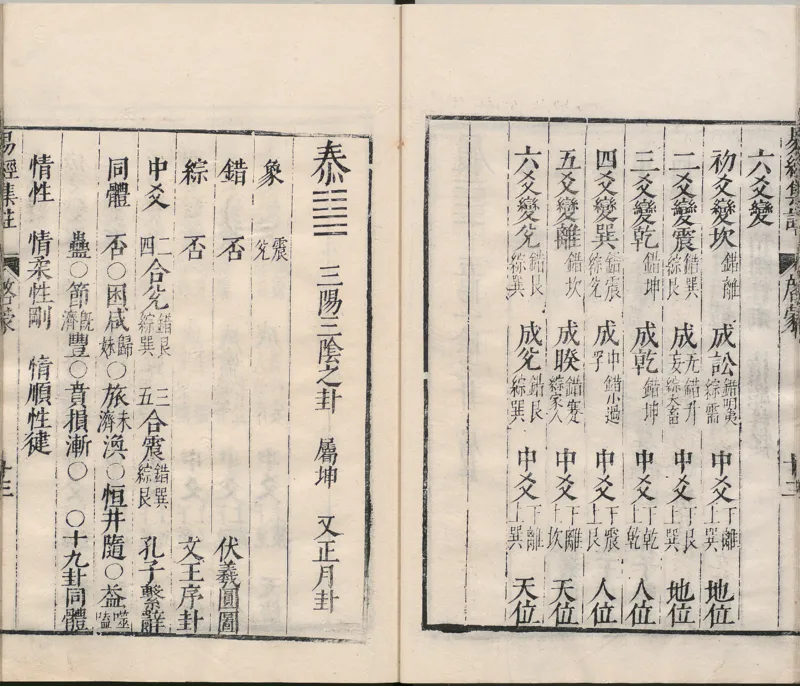 易經集註 啓蒙 十三
六爻變
初爻變坎 錯離 成訟 錯明夷 綜需 中爻 下離 上巽 地位
二爻變震 錯巽 綜艮 成无妄 錯升 綜大畜 中爻 下艮 上巽 地位
三爻變乾 錯坤 成乾 錯坤 中爻 下乾 上乾 人位
四爻變巽 錯震 綜兌 成中孚 錯小過 中爻 下震 上艮 人位
五爻變離 錯坎 成睽 錯蹇 綜家人 中爻 下離 上坎 天位
六爻變兌 錯艮 綜巽 成兌 錯艮 綜巽 中爻 下離 上巽 天位
泰 三陽三陰之卦 屬坤 又正月卦
象 震 兌
錯 否 伏羲圓圖
綜 否 文王序卦
中爻 二四合兌 錯艮 綜巽 三五合震 錯巽 綜艮 孔子繫辭
同體 否○困咸歸妹○旅未濟渙○恒井隨○益噬嗑
蠱○節既濟豐○賁損漸○ ○十九卦同體
情性 情柔性剛 情順性徤
易經集註 啓蒙 十三